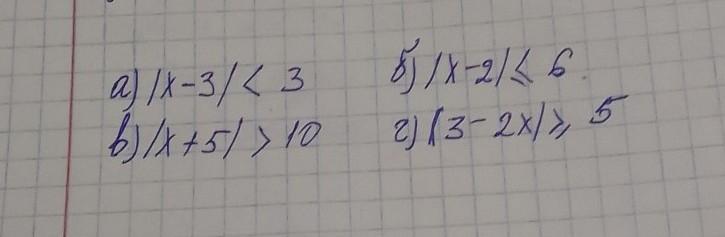 а) |x-3| < 3 б) |x-2| ≤ 6
в) |x+5| > 10 г) |3-2x| ≥ 5